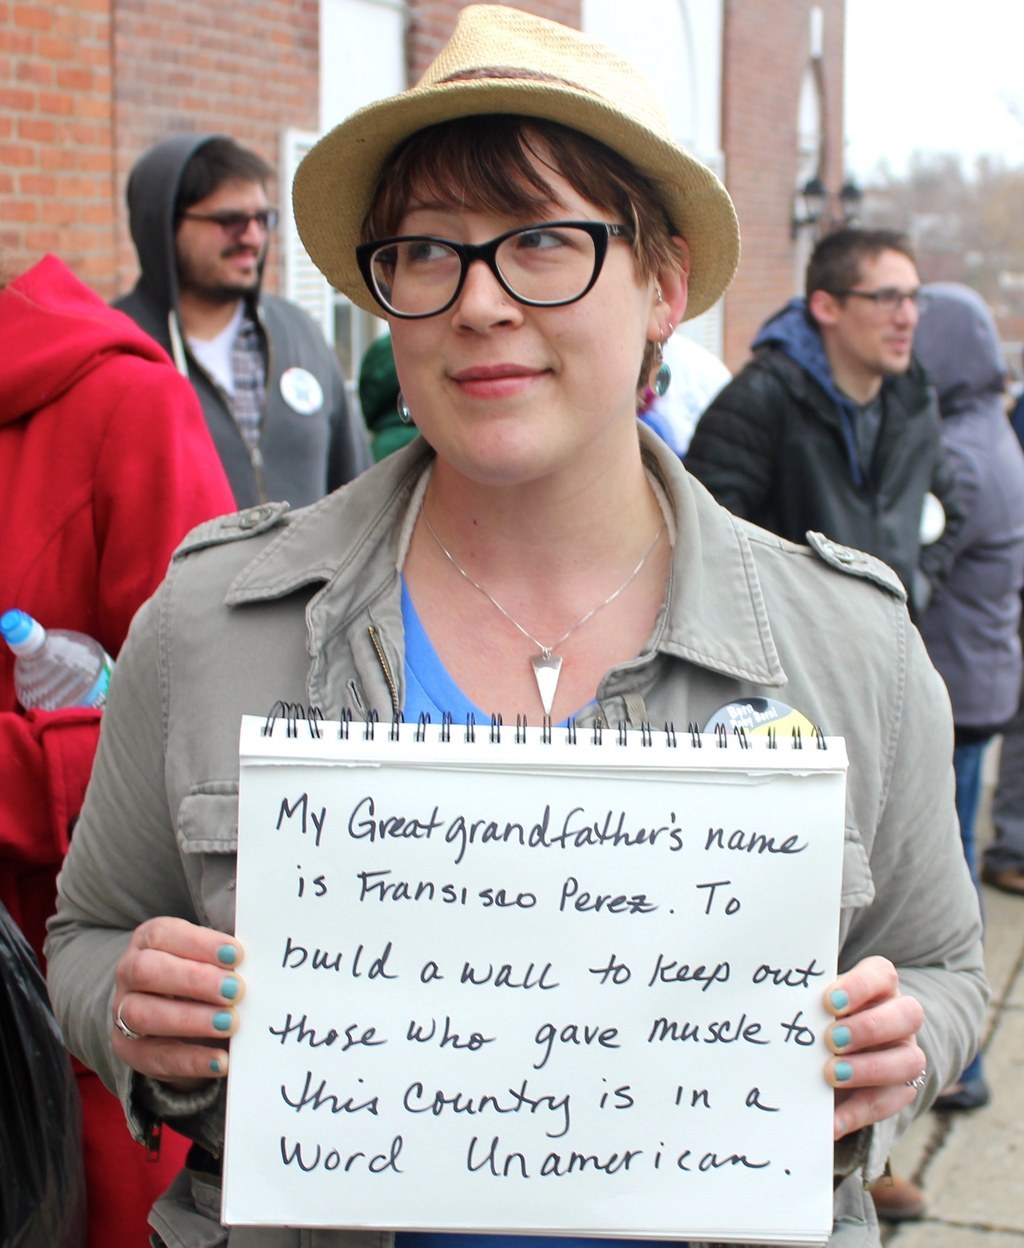 My Great grandfather's name
is Fransisco Perez. To
build a wall to keep out
those who gave muscle to
this Country is in a
Word Unamerican.